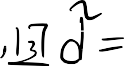 ,137 d² =